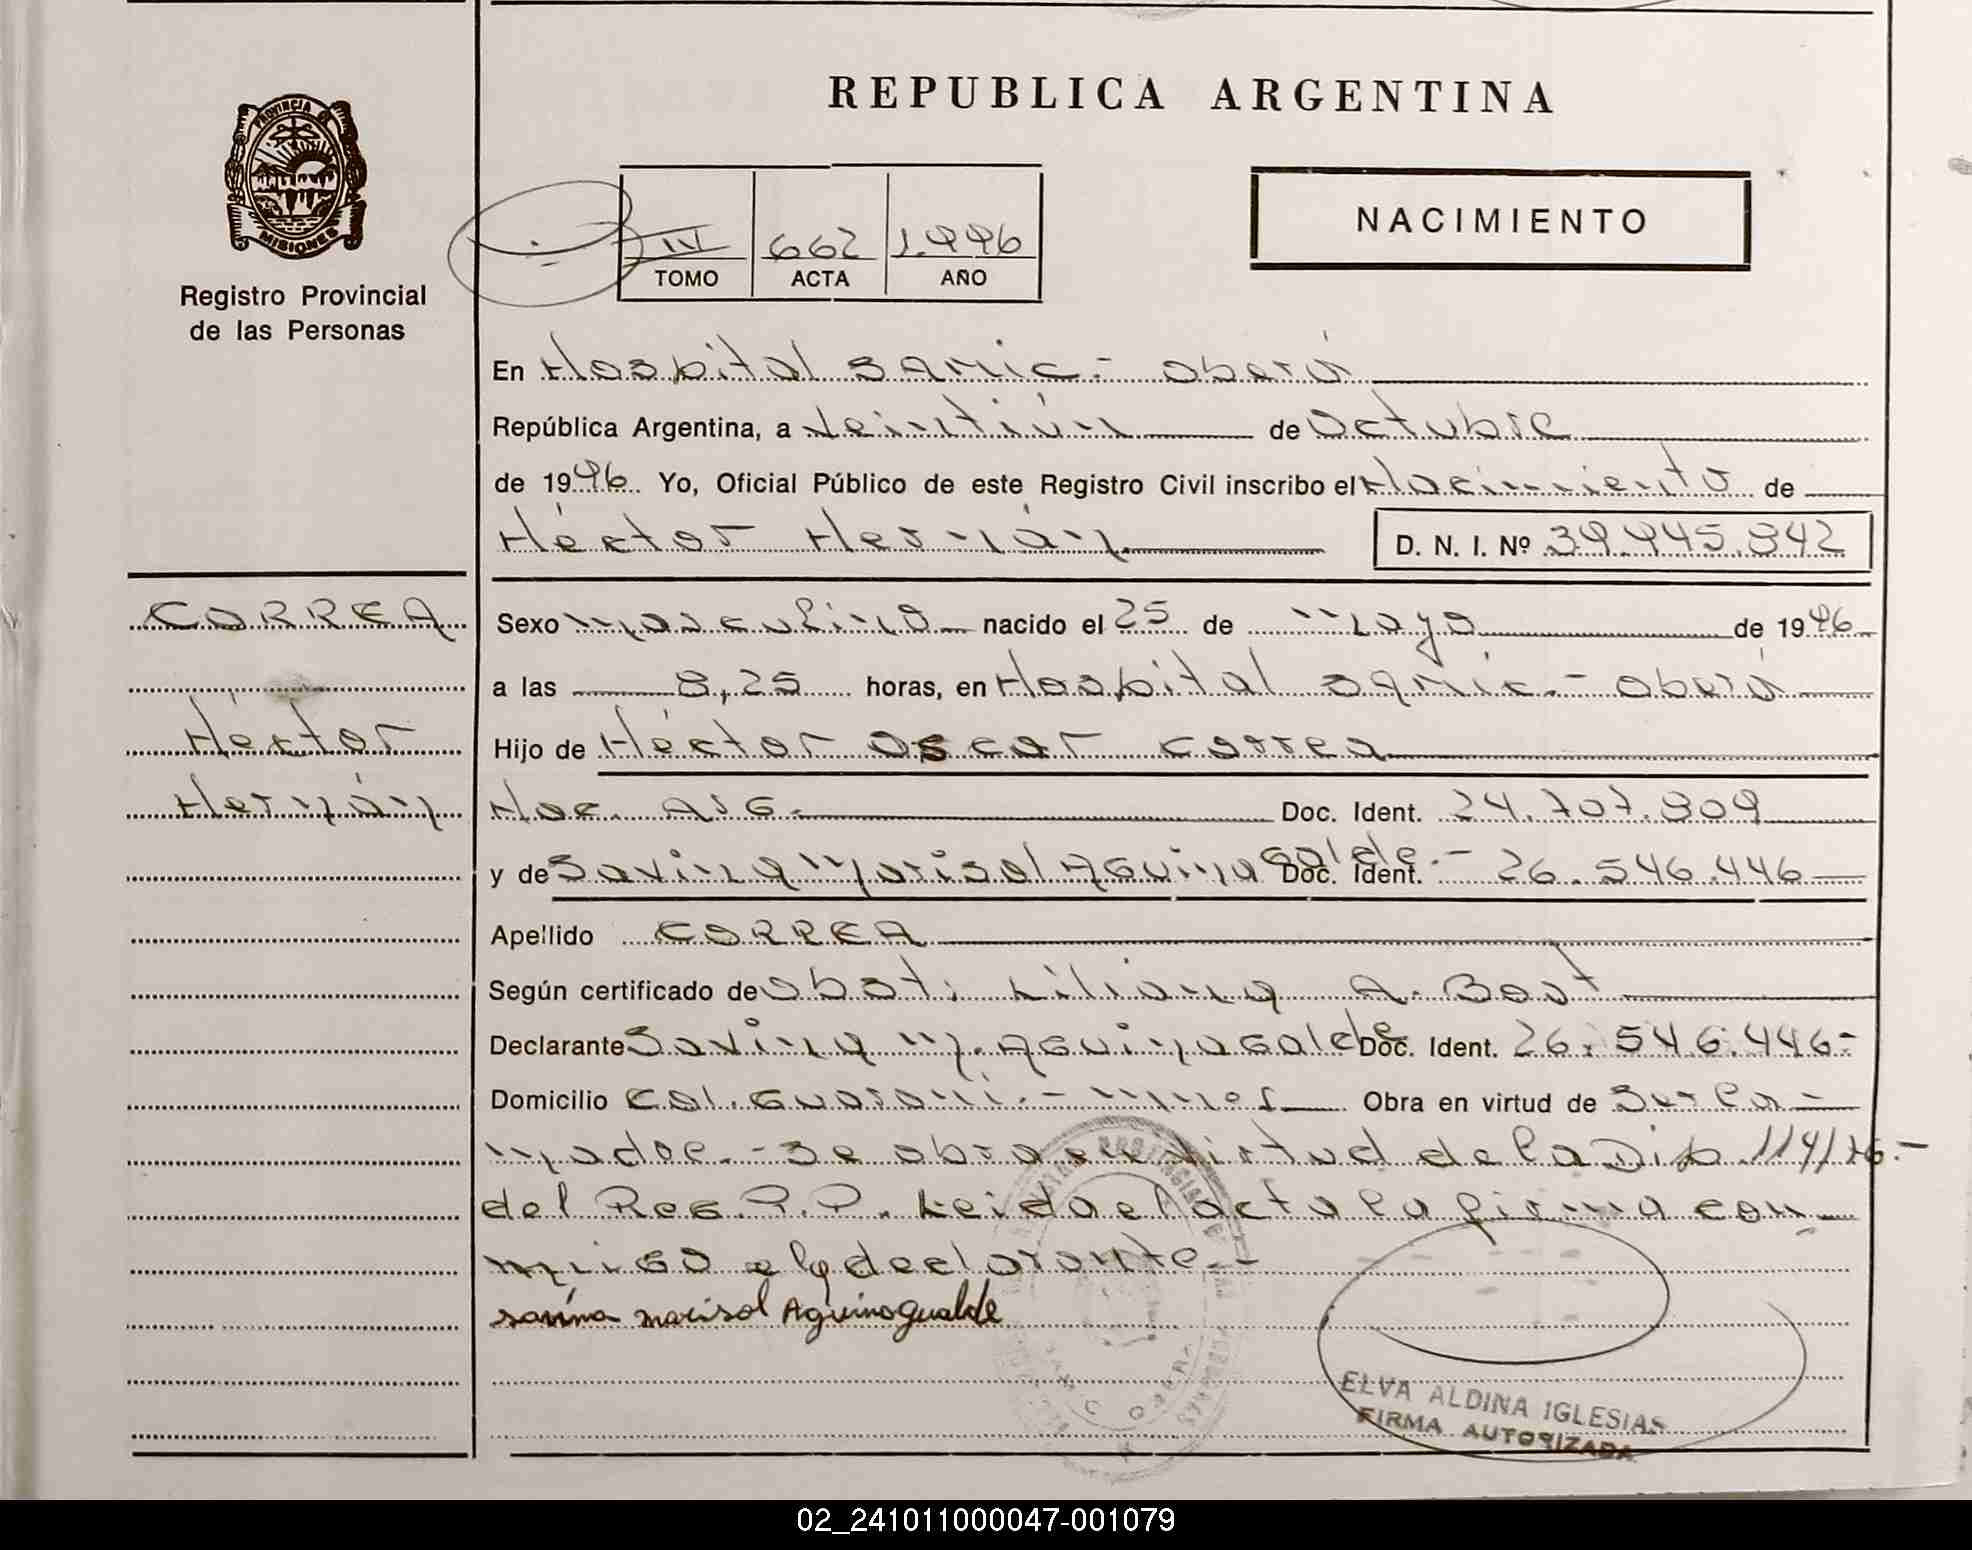 REPUBLICA ARGENTINA
PROVINCIA DE
MISIONES
Registro Provincial
de las Personas
III 662 1.996
TOMO ACTA AÑO
NACIMIENTO
En Hospital SAMIC.- Oberá
República Argentina, a Veintiún de Octubre
de 1996 Yo, Oficial Público de este Registro Civil inscribo el Nacimiento de
Héctor Hernán D. N. I. Nº 39.945.842
CORREA
Héctor
Hernán
Sexo masculino nacido el 25 de mayo de 1996
a las 8,25 horas, en Hospital SAMIC.- Oberá
Hijo de Héctor Oscar Correa
Nac. Arg. Doc. Ident. 24.707.809
y de Savina Marisol Aguinagalde.- Doc. Ident. 26.546.446
Apellido CORREA
Según certificado de Obst. Liliana A. Bast
Declarante Savina M. Aguinagalde Doc. Ident. 26.546.446-
Domicilio Col. Guaraní.- Mnes. Obra en virtud de Ser la
madre.- Se obra en virtud de la Disp. 114/76.-
del Reg. P.P. Leida el acta la firma con-
migo el declarante.-
savina marisol Aguinagualde
ELVA ALDINA IGLESIAS
FIRMA AUTORIZADA
02_241011000047-001079